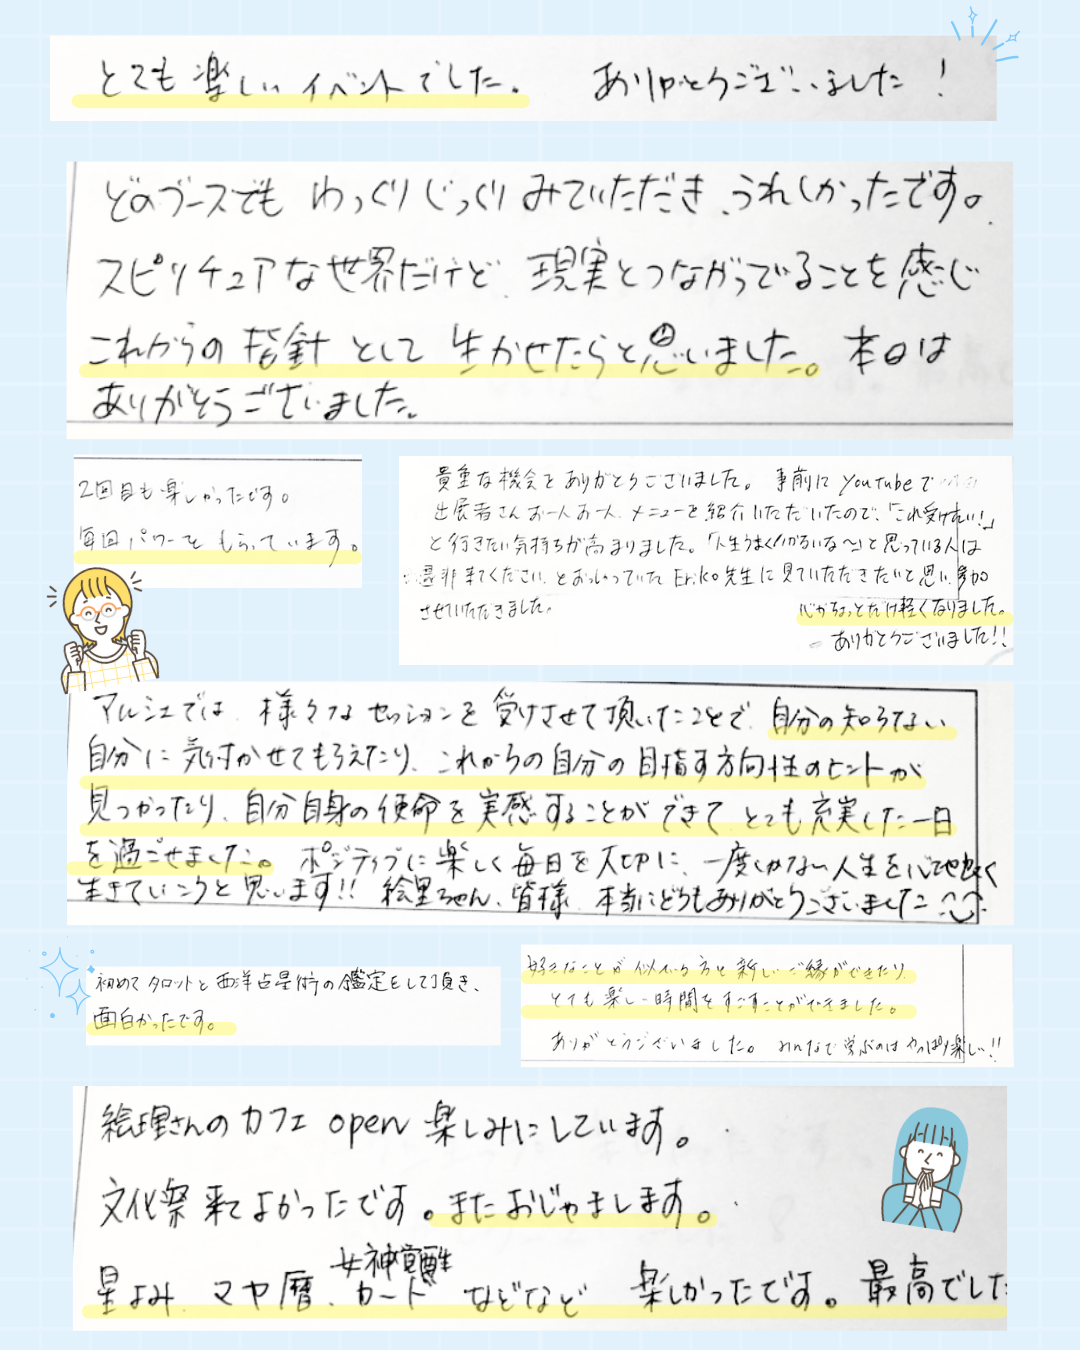 とても楽しいイベントでした。 ありがとうございました!
どのブースでも ゆっくりじっくり みていただき、うれしかったです。
スピリチュアな世界だけど、現実とつながってることを感じ
これからの 指針 として 生かせたらと思いました。 本日は
ありがとうございました。
2回目も楽しかったです。
毎回パワーを もらっています。
貴重な機会をありがとうございました。 事前に YouTubeで
出展者さんお一人お一人、メニューを紹介いただいたので、「これ受けたい!」
と行きたい気持ちが高まりました。「人生うまくいかないな〜」と思っている人は
是非来てください、とおっしゃっていた Eriko先生に見ていただきたいと思い、参加
させていただきました。
心がちょっとだけ軽くなりました。
ありがとうございました!!
マルシェでは、様々な セッションを 受けさせて頂いたことで、自分の知らない
自分に 気付かせてもらえたり、これからの自分の 目指す方向性のヒントが
見つかったり、自分自身の使命を実感することができて とても充実した一日
を過ごせました。 ポジティブに楽しく毎日を大切に、一度しかない人生を心地良く
生きていこうと思います!! 絵里ちゃん、皆様、本当にどうもありがとうございました
初めて タロットと 西洋占星術の鑑定をして頂き、
面白かったです。
好きなことが似ている方と新しいご縁ができたり、
とても楽しい時間をすごすことができました。
ありがとうございました。 みんなで学ぶのはやっぱり楽しい!!
絵理さんのカフェ open 楽しみにしています。
文化祭 来てよかったです。またおじゃまします。
女神覚醒
星よみ、マヤ暦、カード などなど 楽しかったです。最高でした